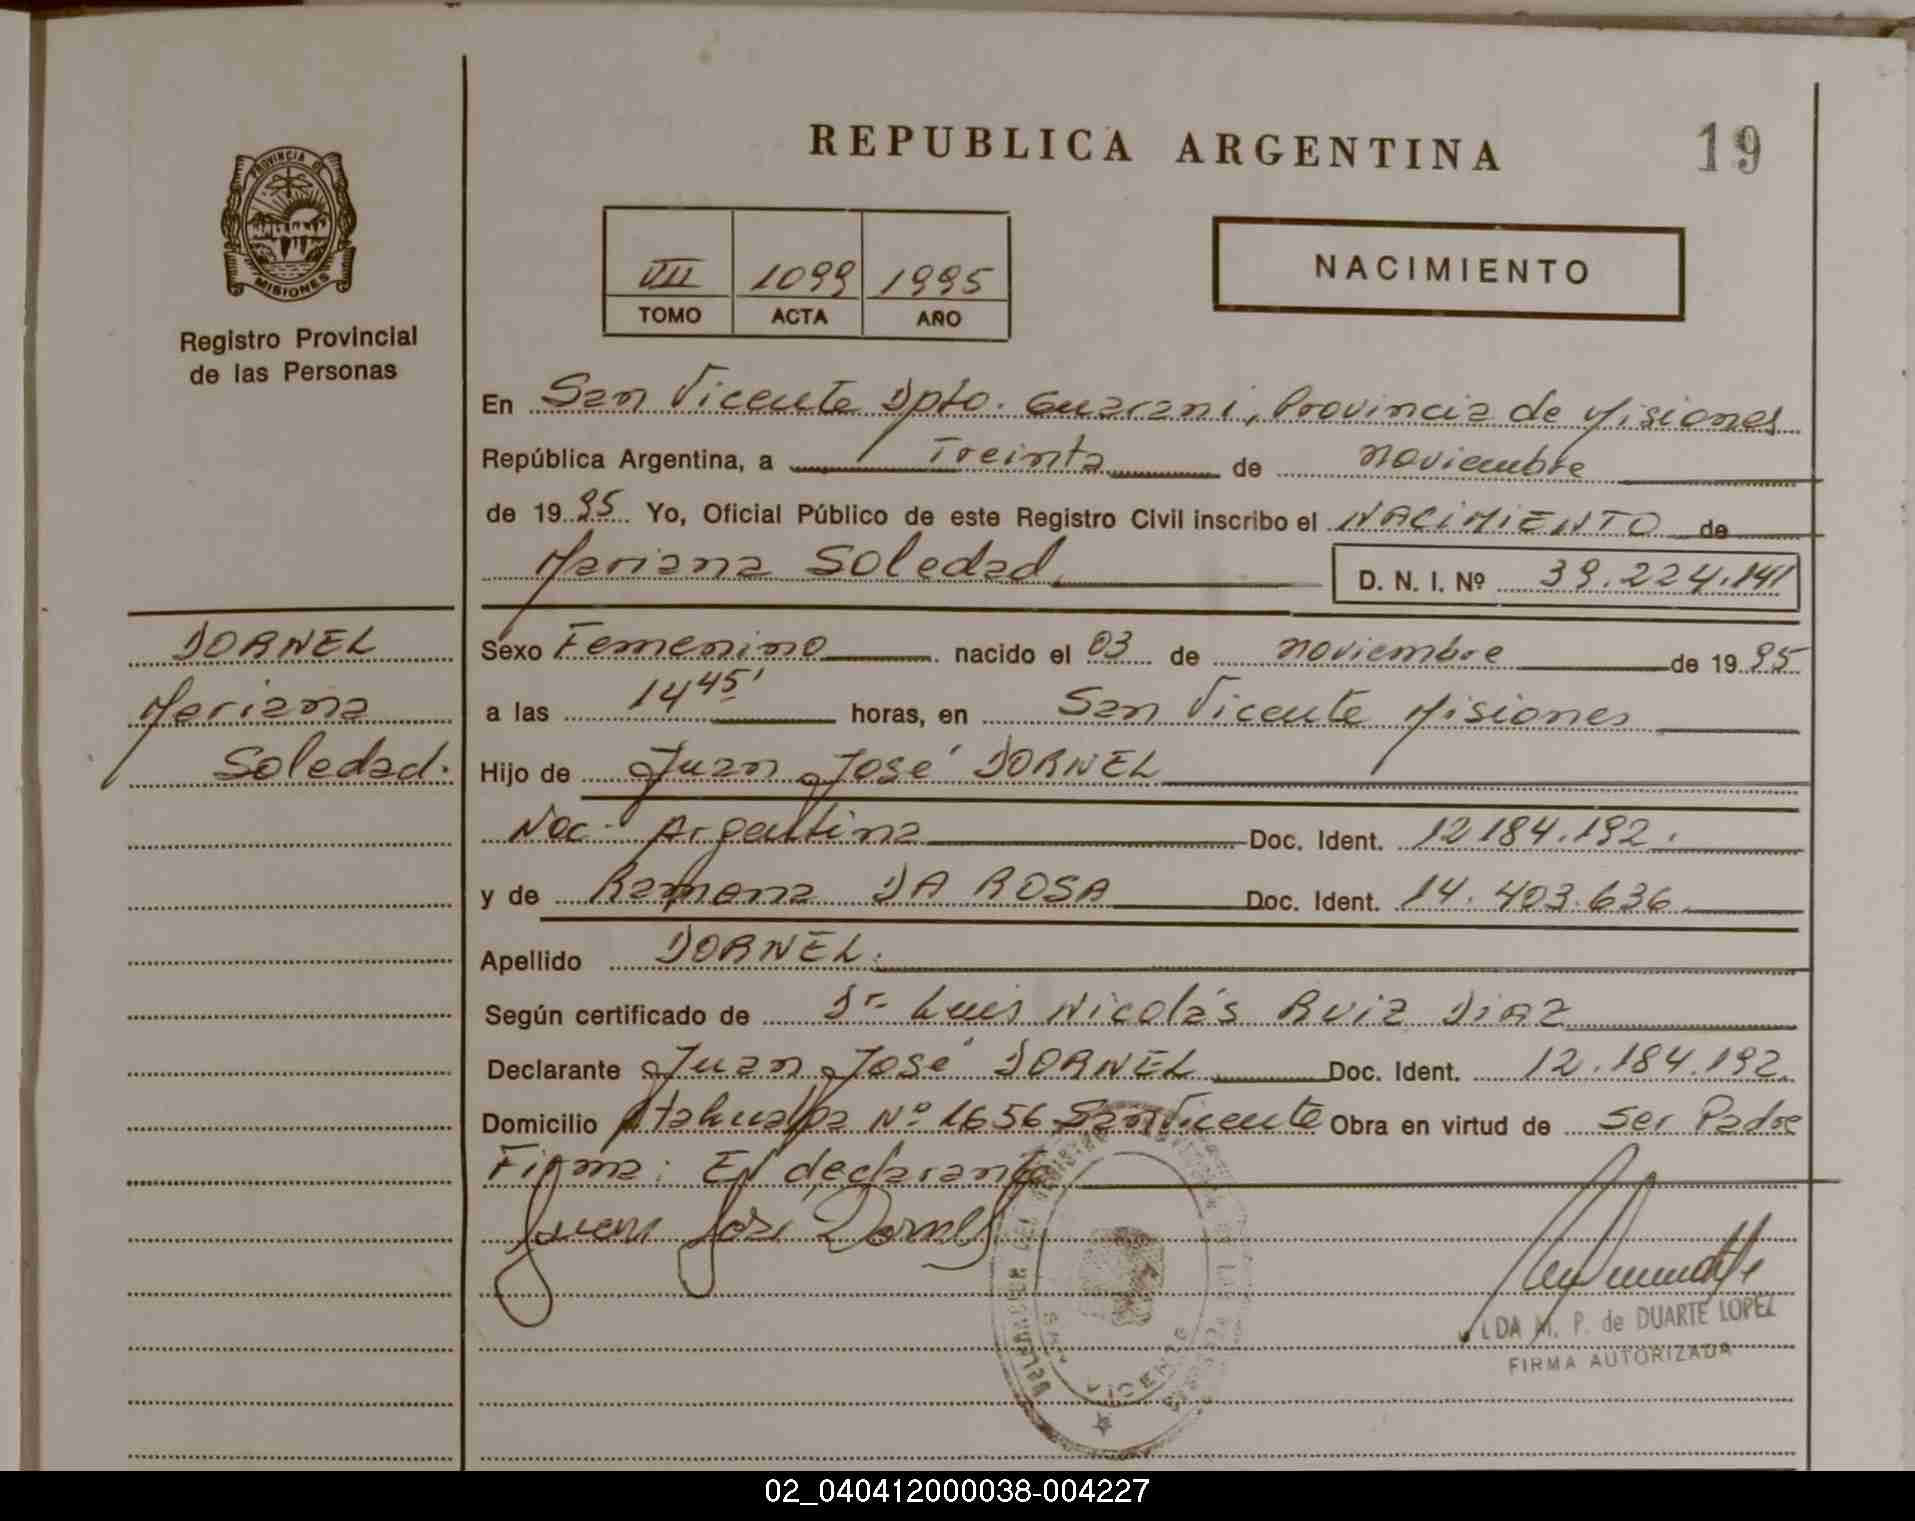 REPUBLICA ARGENTINA
19
PROVINCIA DE
MISIONES
Registro Provincial
de las Personas
VII 1099 1995
TOMO ACTA AÑO
NACIMIENTO
En San Vicente Dpto. Guarani, Provincia de Misiones
República Argentina, a Treinta de noviembre
de 1995 Yo, Oficial Público de este Registro Civil inscribo el NACIMIENTO de
Mariana Soledad D. N. I. Nº 39.224.141
DORNEL
Mariana
Soledad.
Sexo Femenino nacido el 03 de noviembre de 1995
a las 14 45' horas, en San Vicente Misiones
Hijo de Juan José DORNEL
Nac. Argentina Doc. Ident. 12.184.192.
y de Ramona DA ROSA Doc. Ident. 14.403.636.
Apellido DORNEL.
Según certificado de Dr. Luis Nicolás Ruiz Diaz
Declarante Juan José DORNEL Doc. Ident. 12.184.192.
Domicilio Atahualpa Nº 1656 San Vicente Obra en virtud de ser Padre
Firma: El declarante
Juan José Dornel
LDA M. P. de DUARTE LOPEZ
FIRMA AUTORIZADA
SAN VICENTE
02_040412000038-004227